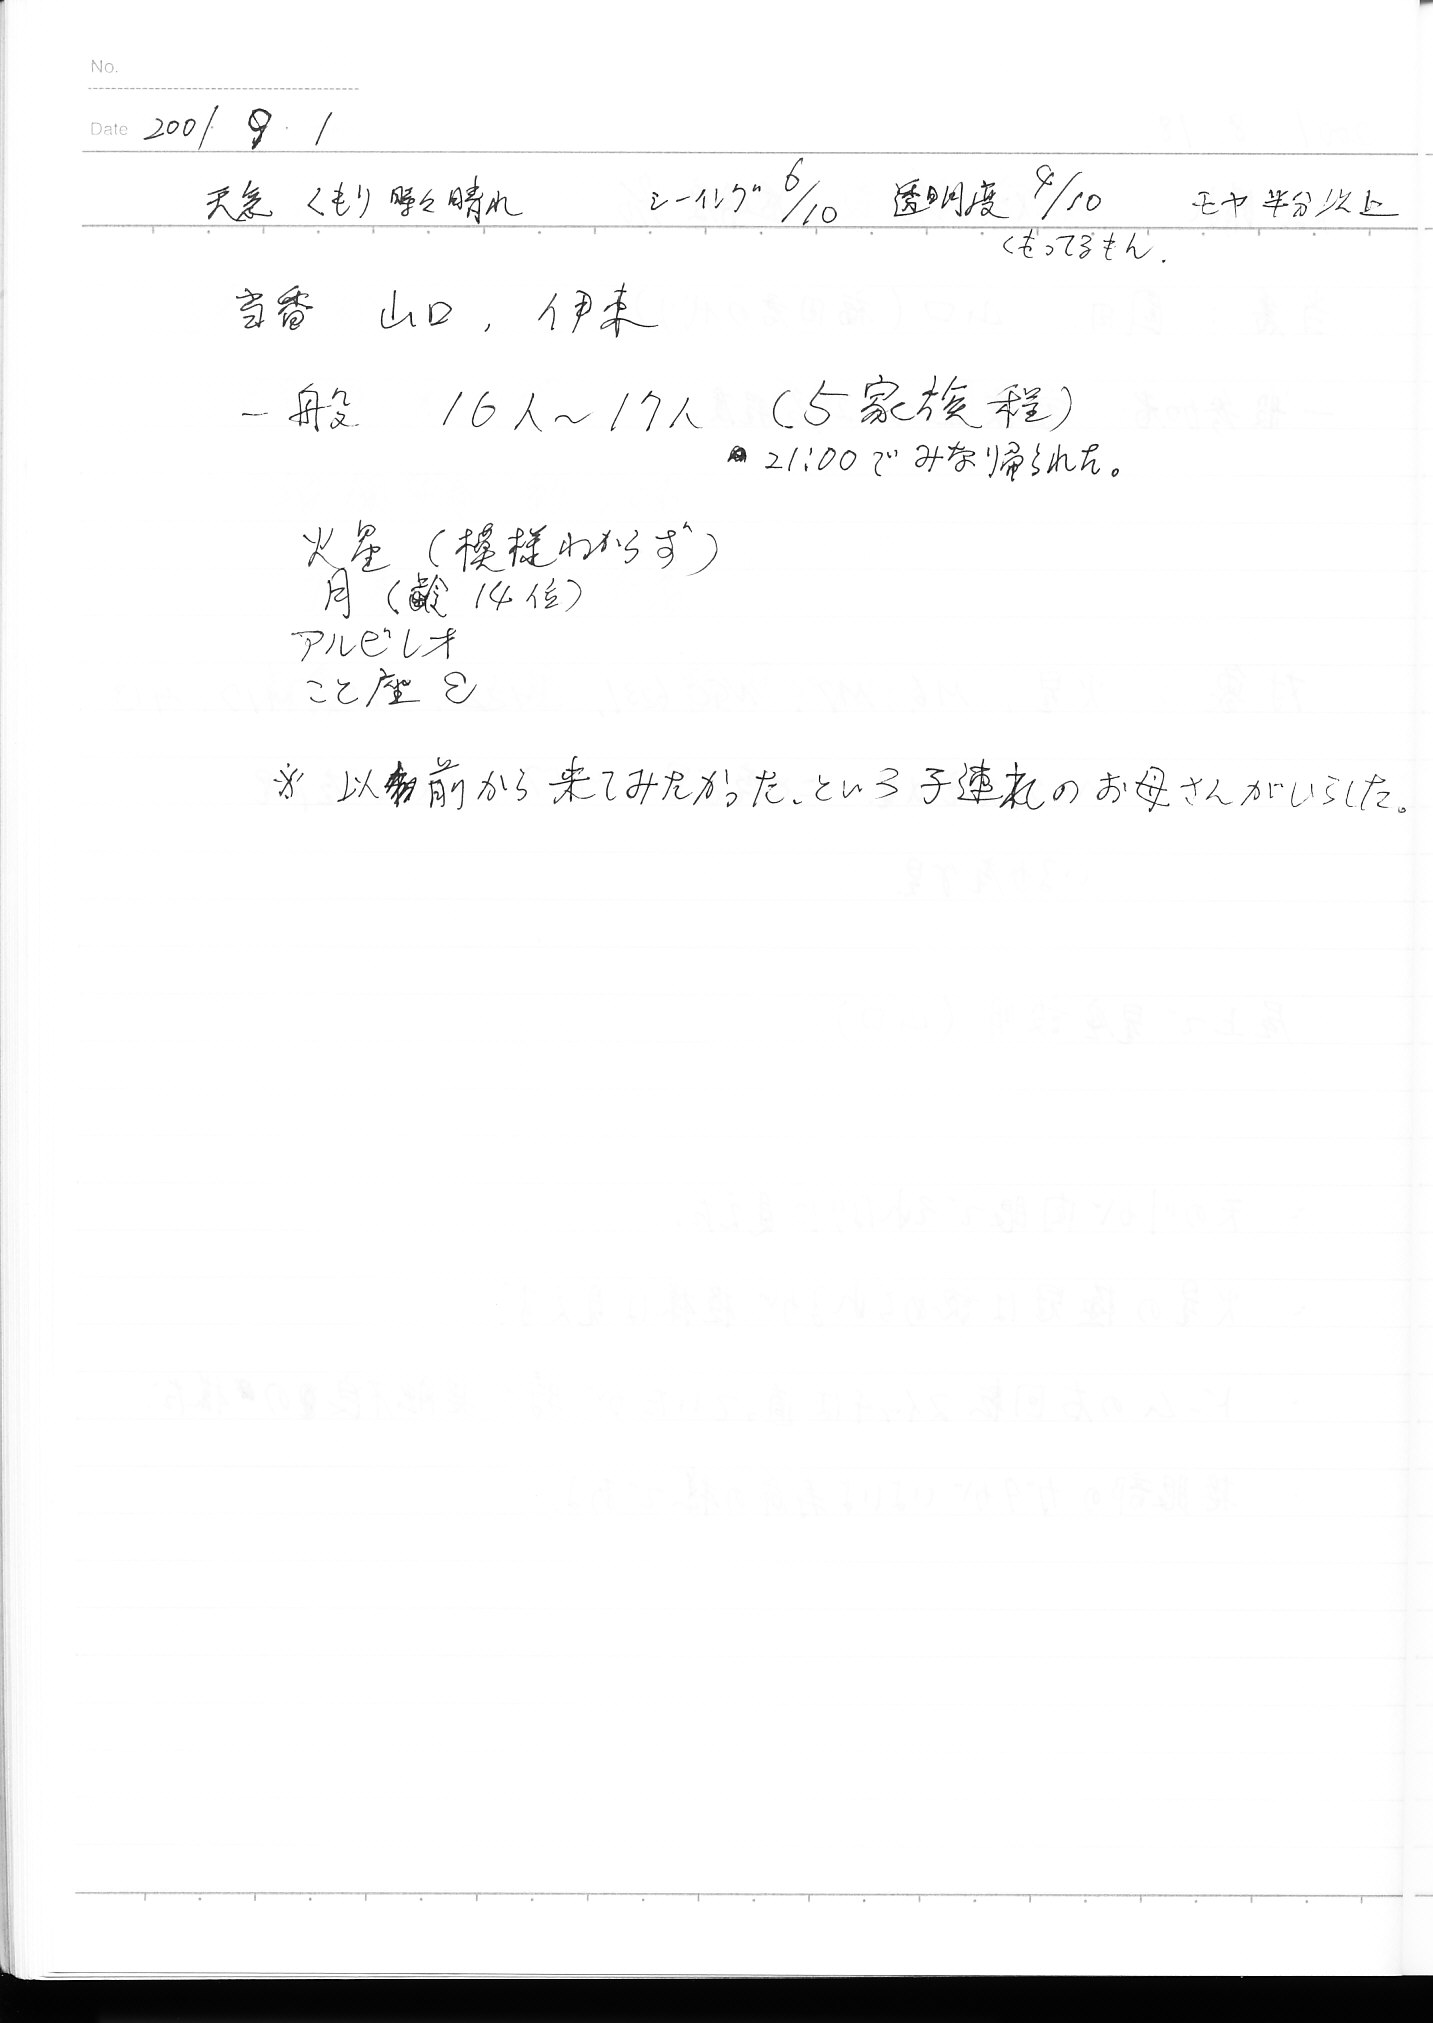 No.
Date 2001. 9. 1
天気 くもり時々晴れ シーイング 6/10 透明度 4/10 モヤ 半分以上
くもってるもん.
当番 山口, 伊東
一般 16人～17人 (5家族程)
21:00でみな帰られた。
火星 (模様わからず)
月 (齢 14位)
アルビレオ
こと座 ε
※ 以前から来てみたかった、という子連れのお母さんがいらした。